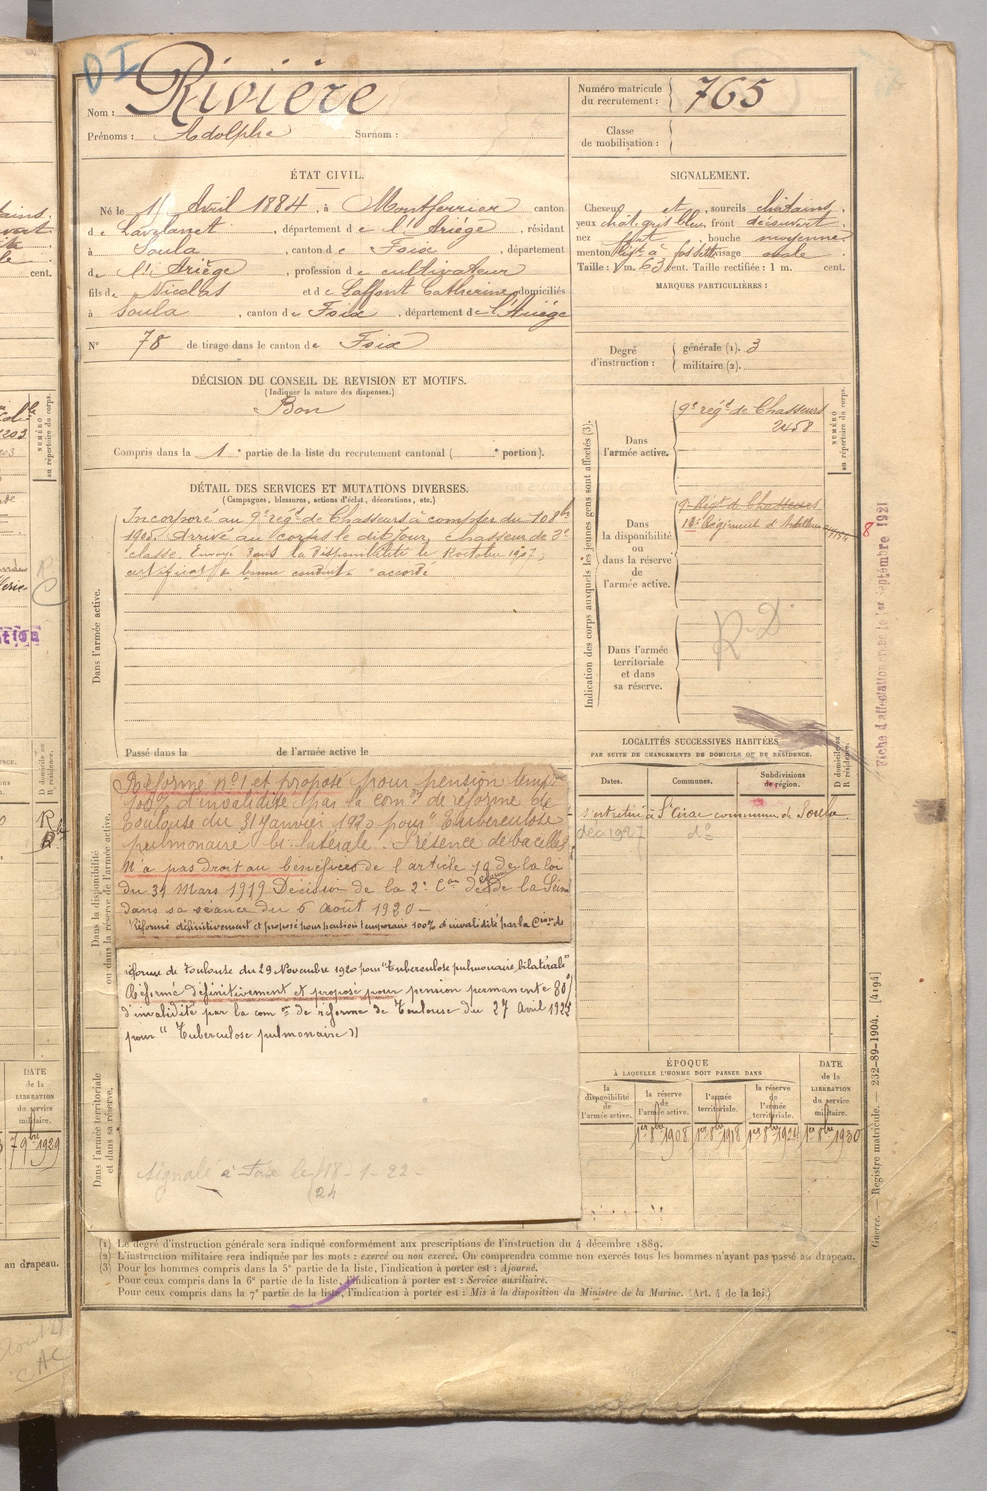 DI
Nom : Rivière
Prénoms : Adolphe Surnom :
Numéro matricule
du recrutement : 765
Classe
de mobilisation :
ÉTAT CIVIL.
Né le 1 Avril 1884, à Montferrier canton
de Lavelanet, département de l'Ariège, résidant
à Soula, canton de Foix, département
de l'Ariège, profession de cultivateur
fils de Nicolas et de Laffont Catherine, domiciliés
à Soula, canton de Foix, département de l'Ariège
N° 78 de tirage dans le canton de Foix
SIGNALEMENT.
Cheveux et , sourcils chatains,
yeux chat. gris bleu, front découvert
nez fort, bouche moyenne
menton à fossette visage ovale
Taille : 1 m. 63 cent. Taille rectifiée : 1 m. cent.
MARQUES PARTICULIÈRES :
Degré
d'instruction :
générale (1). 3
militaire (2).
DÉCISION DU CONSEIL DE REVISION ET MOTIFS.
(Indiquer la nature des dispenses.)
Bon
Compris dans la 1e partie de la liste du recrutement cantonal ( e portion).
DÉTAIL DES SERVICES ET MUTATIONS DIVERSES.
(Campagnes, blessures, actions d'éclat, décorations, etc.)
Dans l'armée active.
Incorporé au 9e régt de Chasseurs à compter du 10 8bre
1905. Arrivé au corps le dit jour, chasseur de 2e
classe. Envoyé dans la disponibilité le octobre 1907;
certificat de bonne conduite "accordé"
Passé dans la de l'armée active le
Indication des corps auxquels les jeunes gens sont affectés (3).
Dans
l'armée active.
9e régt de Chasseurs
2458
NUMÉRO
au répertoire du corps.
Dans
la disponibilité
ou
dans la réserve
de
l'armée active.
9e Régt de Chasseurs
Régiment d'Artillerie
Dans l'armée
territoriale
et dans
sa réserve.
R.D
Fiche d'affectation 1er Septembre 1921
Dans la disponibilité
ou dans la réserve de l'armée active.
Réformé n° 1 et proposé pour pension temp.
100% d'invalidité par la comon de réforme de
Toulouse du 31 Janvier 1920 pour "Tuberculose
pulmonaire bi-latérale. Présence de bacilles
N'a pas droit au bénéfice de l'article 10 de la loi
du 31 Mars 1919 Décision de la 2e Con de réforme de la Seine
dans sa séance du 6 août 1920 -
Réformé définitivement et proposé pour pension temporaire 100% d'invalidité par la Cion de
réforme de Toulouse du 29 Novembre 1920 pour "Tuberculose pulmonaire bilatérale"
Réformé définitivement et proposé pour pension permanente 80%
d'invalidité par la comon de réforme de Toulouse du 27 Avril
pour "Tuberculose pulmonaire"
Dans l'armée territoriale
et dans sa réserve.
Signalé à Foix le 18-1-22-
24
LOCALITÉS SUCCESSIVES HABITÉES
PAR SUITE DE CHANGEMENTS DE DOMICILE OU DE RÉSIDENCE.
Dates. Communes. Subdivisions
de région.
D domicile ou
R résidence.
s'est retiré à St Cirac commune de Soula
déc 1927 do
ÉPOQUE
À LAQUELLE L'HOMME DOIT PASSER DANS
la
disponibilité
de
l'armée active.
la réserve
de
l'armée active.
l'armée
territoriale.
la réserve
de
l'armée
territoriale.
DATE
de la
LIBÉRATION
du service
militaire.
1er 8bre 1908 1er 8bre 1918 1er 8bre 1924 1er 8bre 1930
(1) Le degré d'instruction générale sera indiqué conformément aux prescriptions de l'instruction du 4 décembre 1889.
(2) L'instruction militaire sera indiquée par les mots : exercé ou non exercé. On comprendra comme non exercés tous les hommes n'ayant pas passé au drapeau.
(3) Pour les hommes compris dans la 5e partie de la liste, l'indication à porter est : Ajourné.
Pour ceux compris dans la 6e partie de la liste, l'indication à porter est : Service auxiliaire.
Pour ceux compris dans la 7e partie de la liste, l'indication à porter est : Mis à la disposition du Ministre de la Marine. (Art. 4 de la loi.)
Guerre. — Registre matricule. — 232-89-1904. [4194]
cent.
NUMÉRO
au répertoire du corps.
D domicile ou
R résidence.
DATE
de la
LIBÉRATION
du service
militaire.
7 9bre 1929
au drapeau.